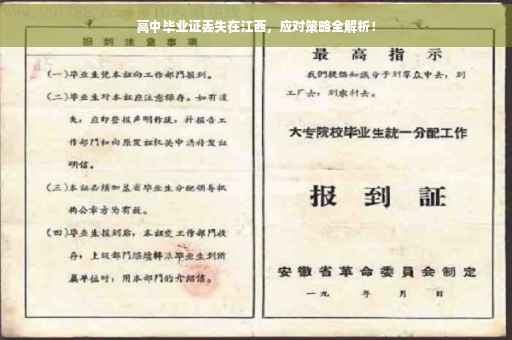 高中毕业证丢失在江西，应对策略全解析！
报到注意事项
(一)毕业生凭本证向工作部门报到。
(二)毕业生对本证应注意保存。如有遗
失，应即登报声明作废，并报告工
作部门和向原发证机关申请补发证
明信。
(三)本证必须加盖省毕业生分配领导机
构公章方为有效。
(四)毕业生报到后，本证交工作部门收
存；上级部门继续转派毕业生到所
属单位时，用本部门的介绍信。
最高指示
我们提倡知识分子到群众中去，到
工厂去，到农村去。
大专院校毕业生統一分配工作
报到証
安徽省革命委員会制定
一九 年 月 日